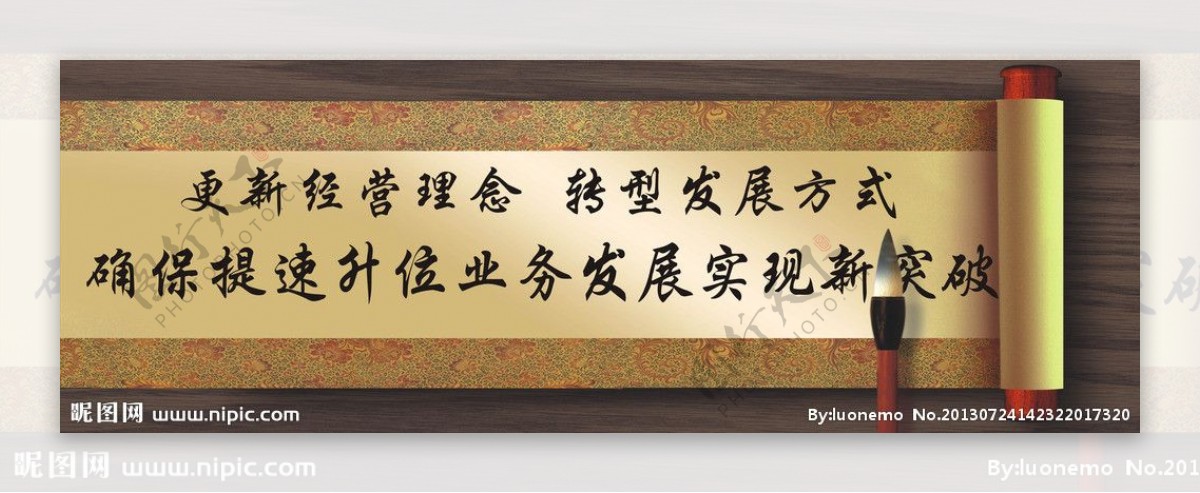 更新经营理念 转型发展方式
确保提速升位业务发展实现新突破
昵图网 www.nipic.com
By:luonemo No.20130724142322017320
昵图网 www.nipic.com
By:luonemo No.201